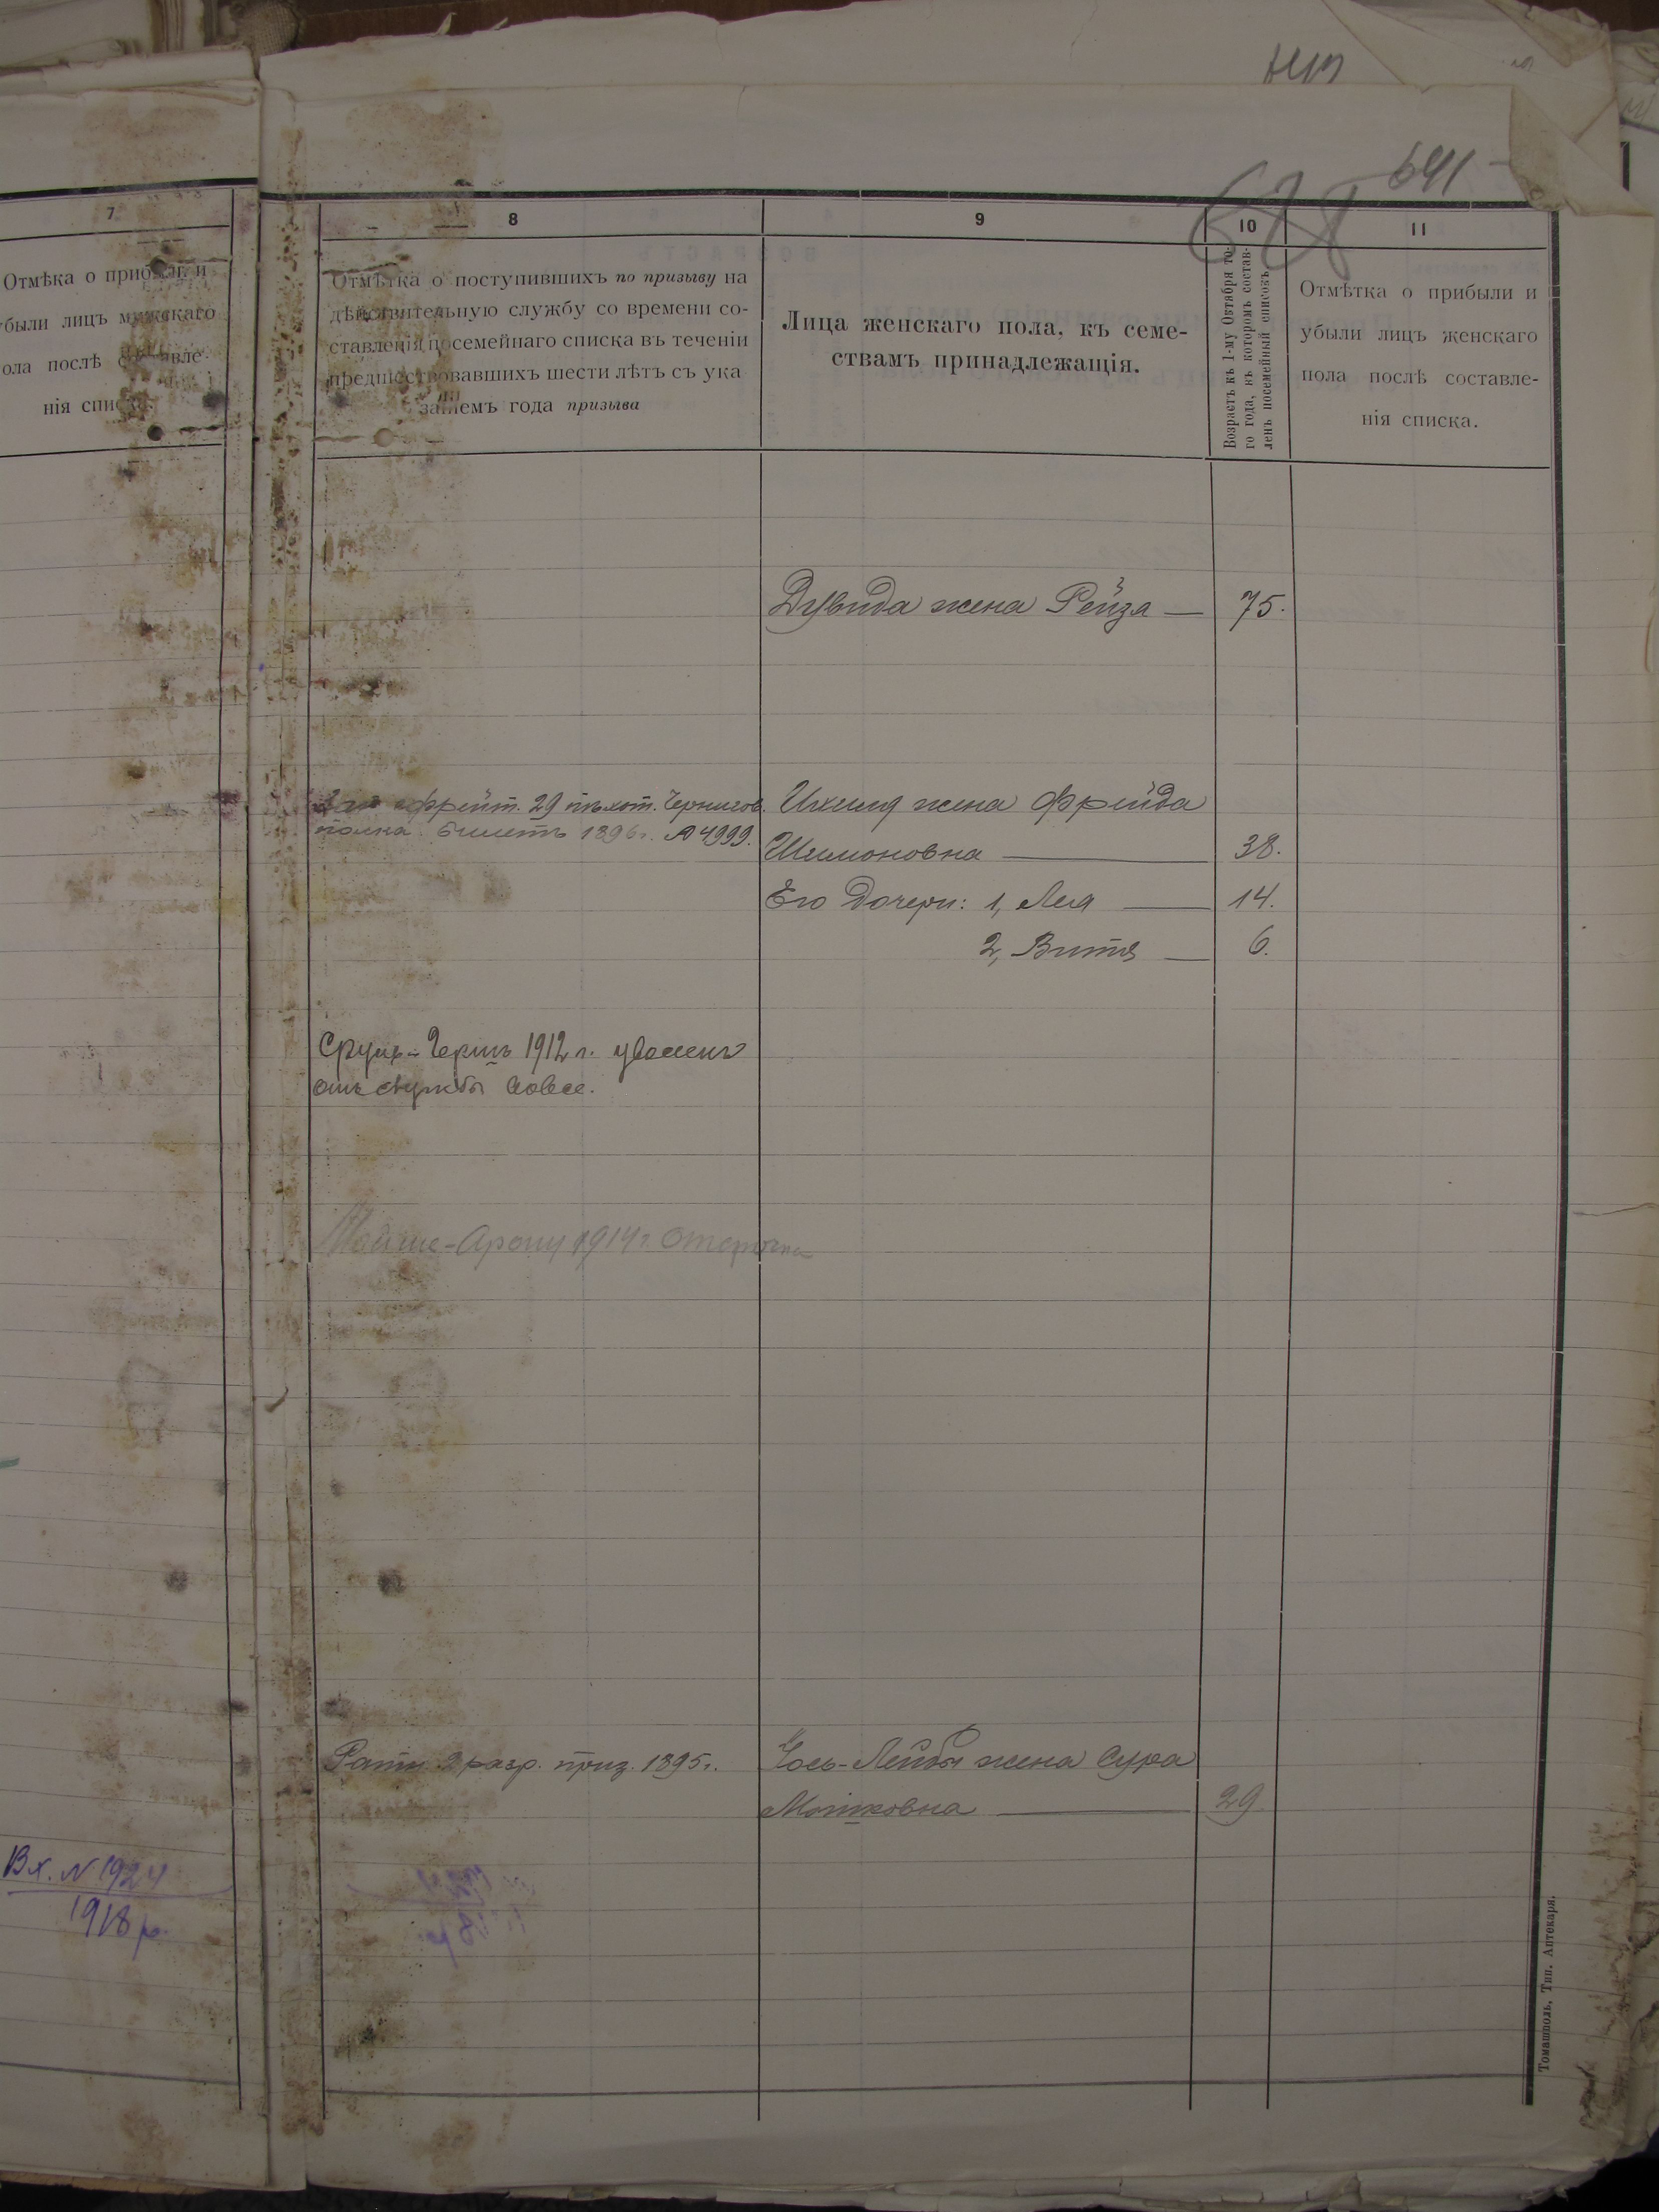 641
7
Отмѣка о прибыли и
убыли лицъ мужскаго
пола послѣ составле-
нія списка.
8
Отмѣтка о поступившихъ по призыву на
дѣйствительную службу со времени со-
ставленія посемейнаго списка въ теченіи
предшествовавшихъ шести лѣтъ съ ука
заніемъ года призыва
9
Лица женскаго пола, къ семе-
ствамъ принадлежащія.
10
Возрастъ къ 1-му Октября то-
го года, въ которомъ состав-
ленъ посемейный списокъ
11
Отмѣтка о прибыли и
убыли лицъ женскаго
пола послѣ составле-
нія списка.
Дувида жена Рейза — 75.
Зап ефрейт. 29 пѣхот. Чернигов.
полка. Билетъ 1896 г. № 4999.
Ихиля жена Фрейда
Шимоновна — 38.
Его дочери: 1, Лея — 14.
2, Витя — 6.
Сруль-Гершъ 1912 г. уволенъ
отъ службы вовсе.
Мойше-Арону 1914 г. отсрочка
Ратн. 2 разр. приз. 1895 г.
Іось-Лейбы жена Сура
Мошковна — 29
Вх. N 1924
1918 р.
Томашполь, Тип. Аптекаря.